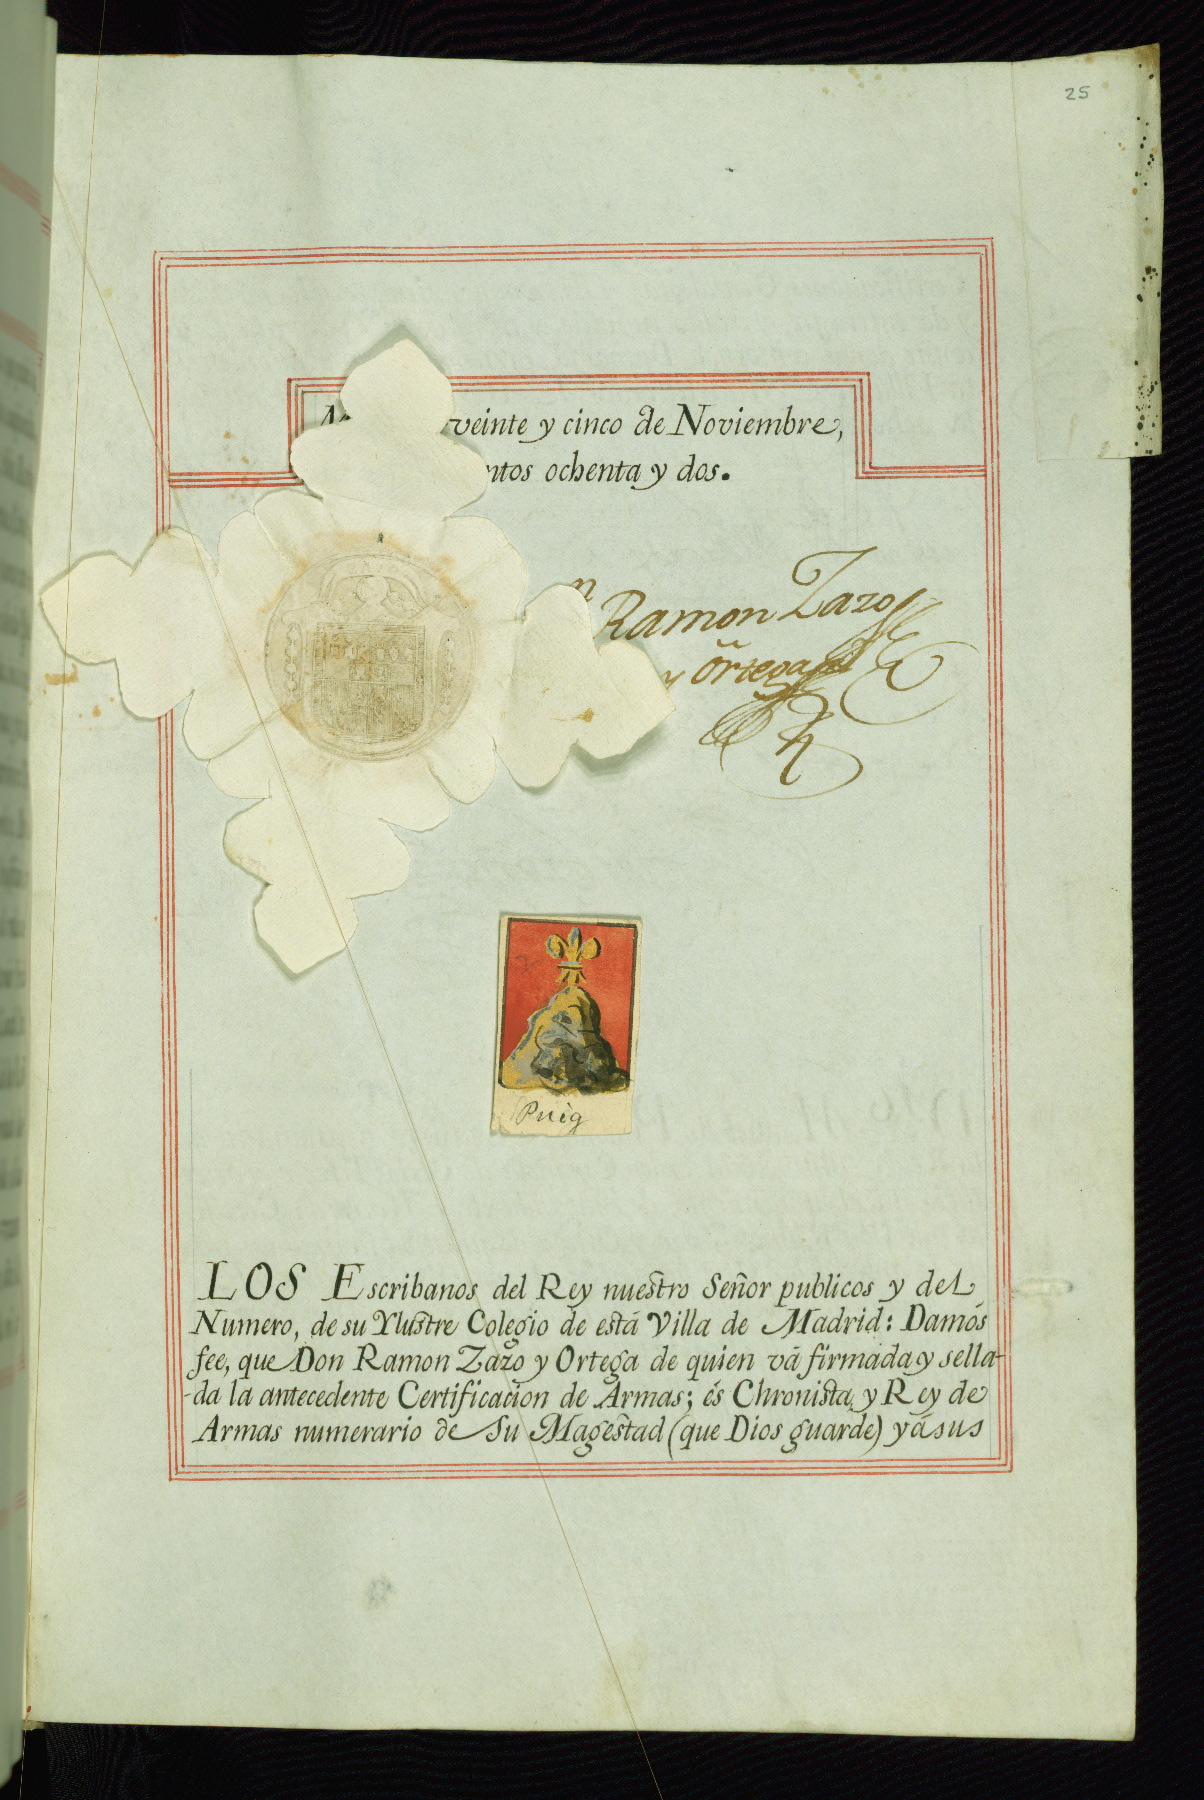 25
veinte y cinco de Noviembre,
ntos ochenta y dos.
n Ramon Zazo
y Ortega
Puig
LOS Escribanos del Rey nuestro Señor publicos y del
Numero, de su Ylustre Colegio de está Villa de Madrid: Damós
fee, que Don Ramon Zazo y Ortega de quien vá firmada y sella-
-da la antecedente Certificacion de Armas; és Chronista, y Rey de
Armas numerario de Su Magestad (que Dios guarde) y á sus